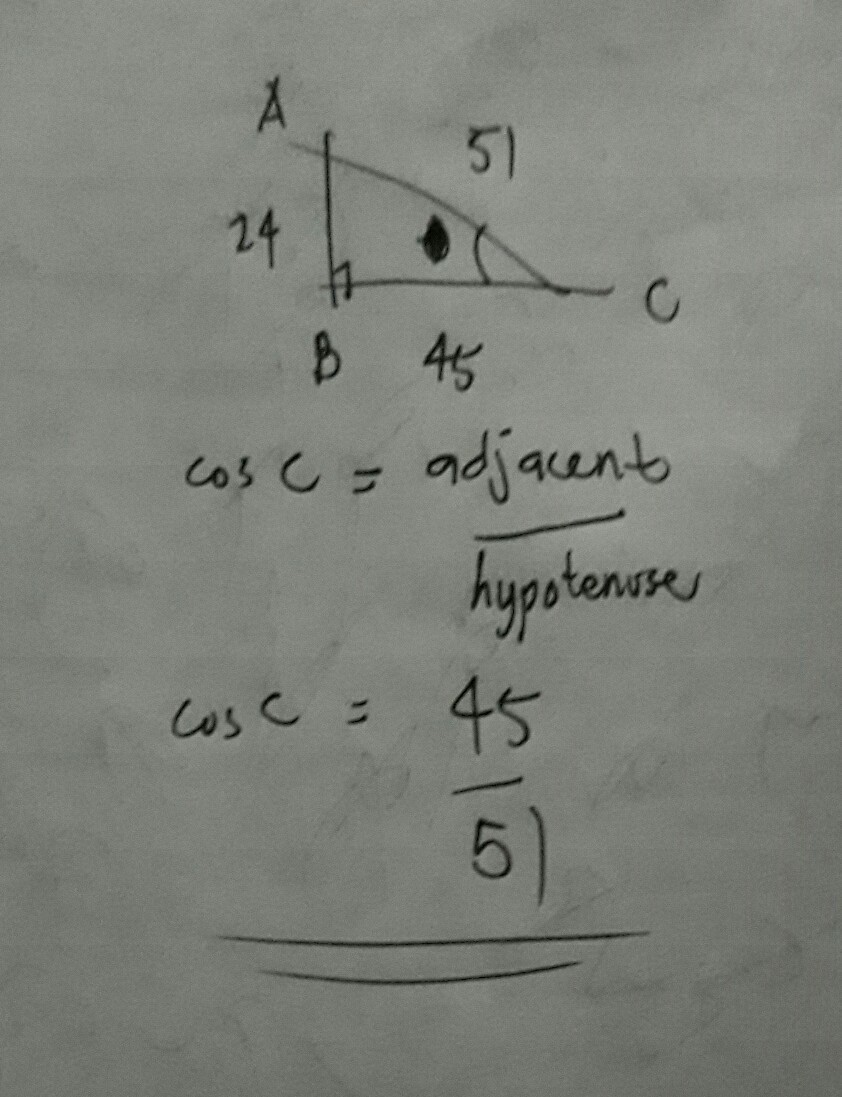 A
51
24
C
B 45
cos C = adjacent
hypotenuse
cos C = 45
51